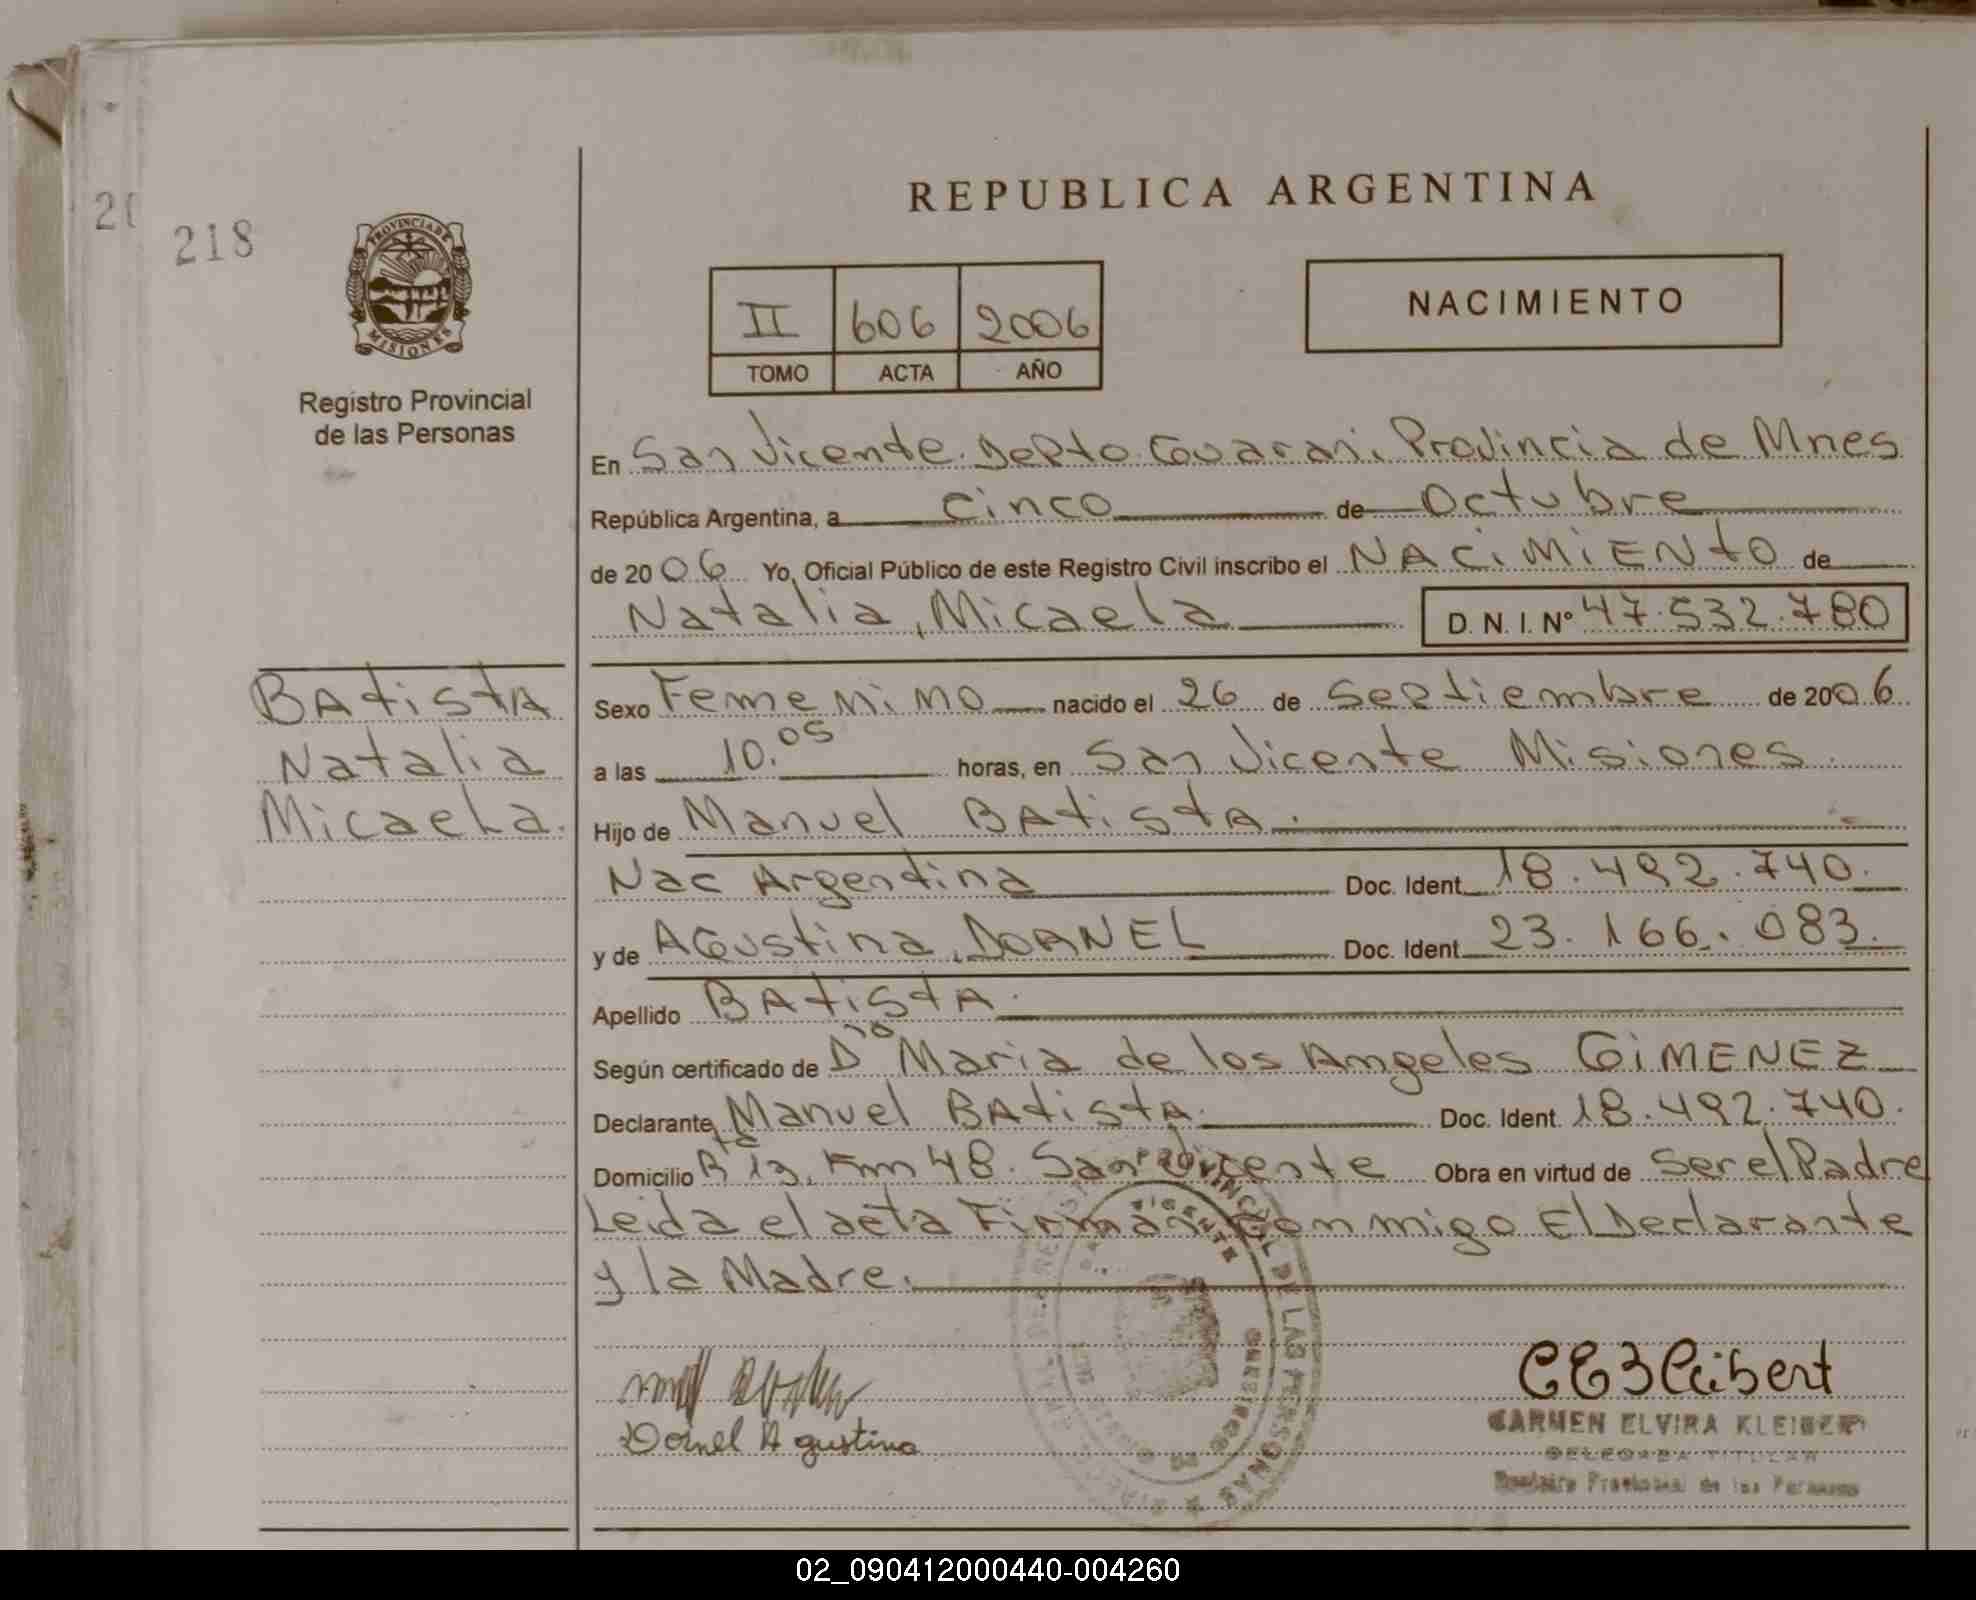 REPUBLICA ARGENTINA
218
PROVINCIA DE
MISIONES
Registro Provincial
de las Personas
II 606 2006
TOMO ACTA AÑO
NACIMIENTO
En San Vicente. Depto. Guarani. Provincia de Mnes
República Argentina, a cinco de Octubre
de 2006 Yo, Oficial Público de este Registro Civil inscribo el NACIMIENTO de
Natalia, Micaela D. N. I. Nº 47.532.780
BAtistA
Natalia
Micaela.
Sexo Femenino nacido el 26 de Septiembre de 2006
a las 10.05 horas, en San Vicente Misiones.
Hijo de Manuel BAtistA.
Nac Argentina Doc. Ident. 18.492.740.
y de Agustina, DORNEL Doc. Ident. 23.166.083.
Apellido BAtistA.
Según certificado de Maria de los Angeles GIMENEZ
Declarante Manuel BAtistA. Doc. Ident. 18.492.740.
Domicilio Rta 13. Km 48. San Vicente Obra en virtud de ser el Padre
Leida el acta Firman conmigo El Declarante
y la Madre.
Dornel Agustina
CARMEN ELVIRA KLEIBERT
DELEGADA TITULAR
Registro Provincial de las Personas
02_090412000440-004260